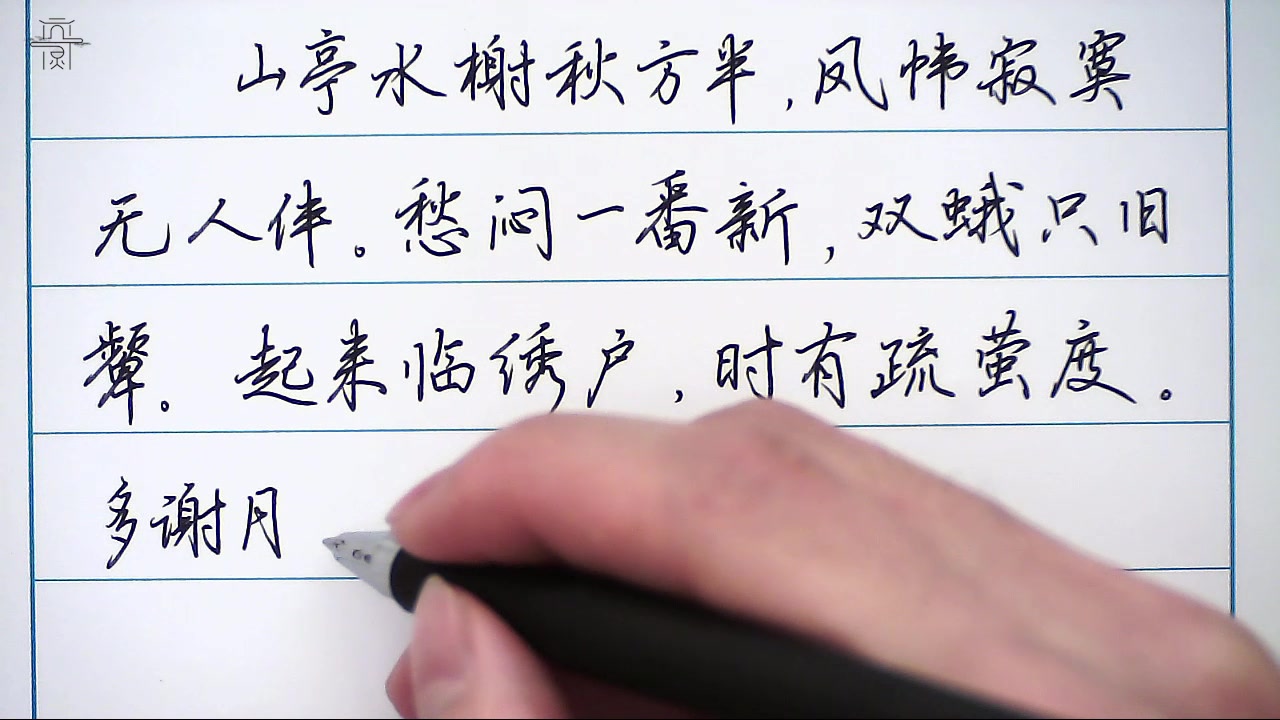 山亭水榭秋方半,凤帏寂寞
无人伴。愁闷一番新,双蛾只旧
颦。起来临绣户,时有疏萤度。
多谢月